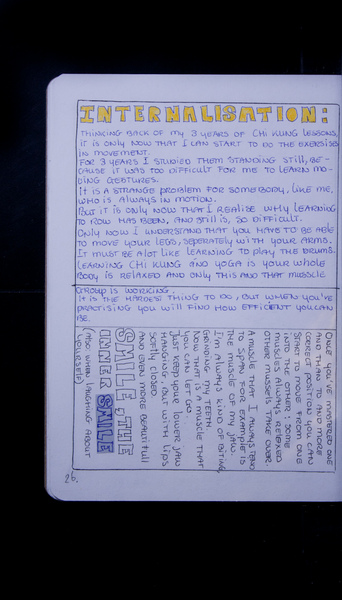 INTERNALISATION:
THINKING BACK OF MY 3 YEARS OF CHI KUNG LESSONS,
IT IS ONLY NOW THAT I CAN START TO DO THE EXERSISES
IN MOVEMENT.
FOR 3 YEARS I STUDIED THEM STANDING STILL, BE-
CAUSE IT WAS TOO DIFFICULT FOR ME TO LEARN MO-
VING GESTURES.
IT IS A STRANGE PROBLEM FOR SOMEBODY, LIKE ME,
WHO IS ALWAYS IN MOTION.
BUT IT IS ONLY NOW THAT I REALISE WHY LEARNING
TO ROW HAS BEEN, AND STILL IS, SO DIFFICULT.
ONLY NOW I UNDERSTAND THAT YOU HAVE TO BE ABLE
TO MOVE YOUR LEGS, SEPERATELY WITH YOUR ARMS.
IT MUST BE ALOT LIKE LEARNING TO PLAY THE DRUMS.
LEARNING CHI KUNG AND YOGA IS YOUR WHOLE
BODY IS RELAXED AND ONLY THIS AND THAT MUSCLE
GROUP IS WORKING.
IT IS THE HARDEST THING TO DO, BUT WHEN YOU'VE
PRACTISING YOU WILL FIND HOW EFFICIENT YOU CAN
BE.
ONCE YOU'VE MASTERED ONE
AND THAN TO AND MORE
CORRECT POSITION YOU CAN
START TO MOVE FROM ONE
INTO THE OTHER: SOME
MUSCLES ALWAYS RELAXED
OTHER MUSCLES TAKE OVER
A MUSCLE THAT I ALWAYS TEND
TO SPAN FOR EXAMPLE IS
THE MUSCLE OF MY JAW.
I'M ALWAYS KIND OF BITING,
GRINDING MY TEETH.
NOW THAT IS A MUSCLE THAT
YOU CAN LET GO
JUST KEEP YOUR LOWER JAW
HANGING; BUT WITH LIPS
SOFTLY CLOSED
AND EVEN MORE BEAUTIFULL
SMILE, THE
INNER SMILE
(ALSO WHEN LAUGHING ABOUT
YOURSELF)
26.